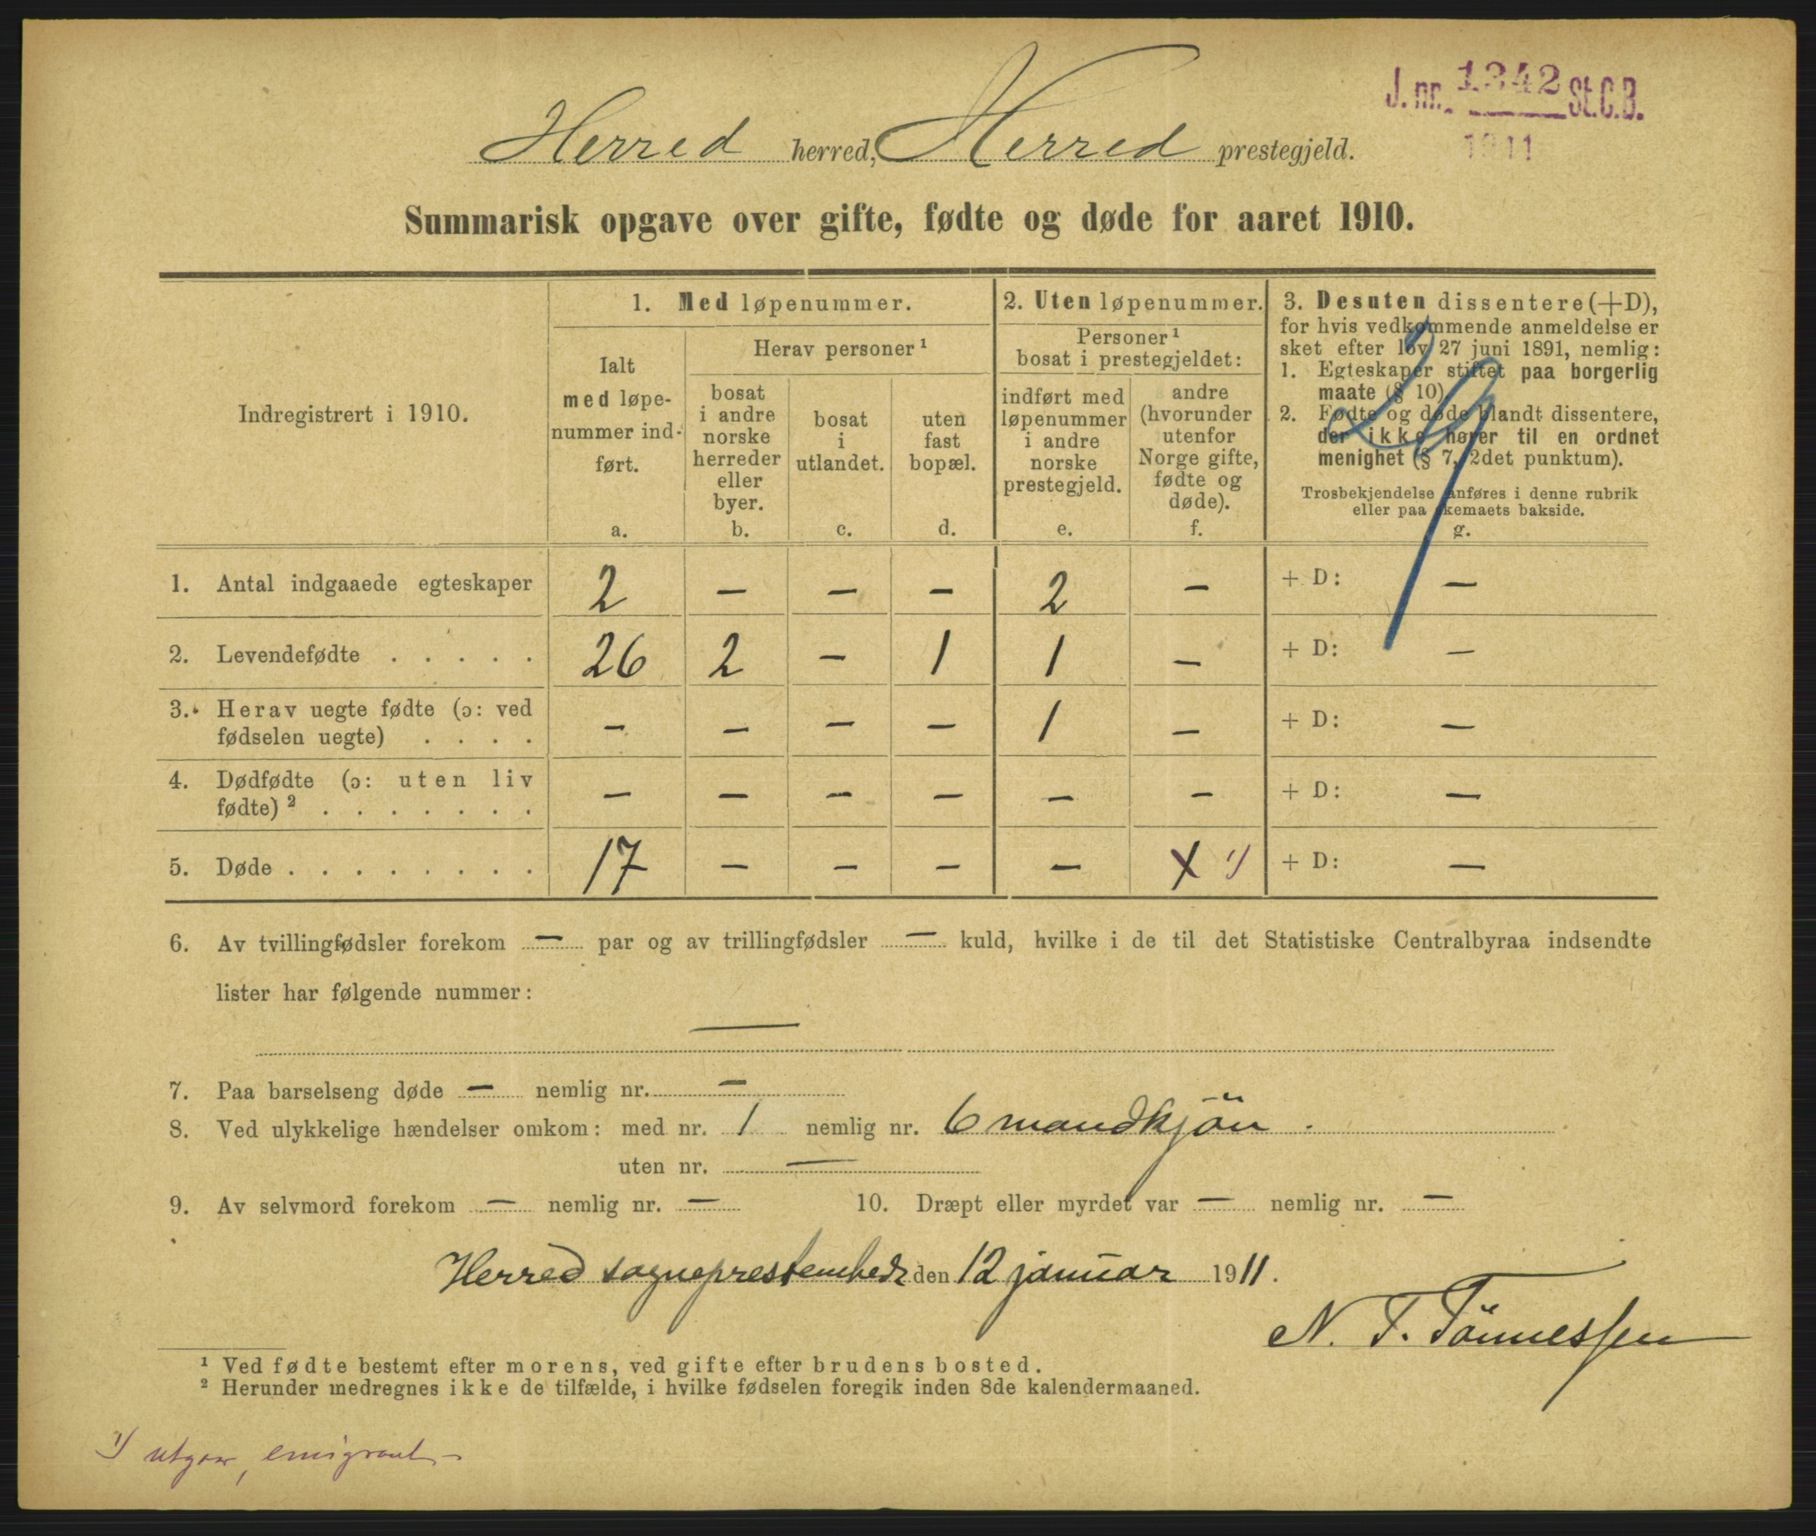 J. nr. 1342 St.C.B.
1911
Herred herred, Herred prestegjeld.
Summarisk opgave over gifte, fødte og døde for aaret 1910.
Indregistrert i 1910.
1. Med løpenummer.
Ialt
med løpe-
nummer ind-
ført.
a.
Herav personer ¹
bosat
i andre
norske
herreder
eller
byer.
b.
bosat
i
utlandet.
c.
uten
fast
bopæl.
d.
2. Uten løpenummer.
Personer ¹
bosat i prestegjeldet:
indført med
løpenummer
i andre
norske
prestegjeld.
e.
andre
(hvorunder
utenfor
Norge gifte,
fødte og
døde).
f.
3. Desuten dissentere (+D),
for hvis vedkommende anmeldelse er
sket efter lov 27 juni 1891, nemlig:
1. Egteskaper stiftet paa borgerlig
maate (§ 10).
2. Fødte og døde blandt dissentere,
der ikke hører til en ordnet
menighet (§ 7, 2det punktum).
Trosbekjendelse anføres i denne rubrik
eller paa skemaets bakside.
g.
1. Antal indgaaede egteskaper 2 — — — 2 — + D: —
2. Levendefødte . . . . . 26 2 — 1 1 — + D: —
3. Herav uegte fødte (ɔ: ved
fødselen uegte) . . . . — — — — 1 — + D: —
4. Dødfødte (ɔ: uten liv
fødte) ² . . . . . . . — — — — — — + D: —
5. Døde . . . . . . . . 17 — — — — X 1) + D: —
6. Av tvillingfødsler forekom — par og av trillingfødsler — kuld, hvilke i de til det Statistiske Centralbyraa indsendte
lister har følgende nummer:
—
7. Paa barselseng døde — nemlig nr. —
8. Ved ulykkelige hændelser omkom: med nr. 1 nemlig nr. 6 mandkjön.
uten nr. —
9. Av selvmord forekom — nemlig nr. — 10. Dræpt eller myrdet var — nemlig nr. —
Herred sogneprestembede den 12 januar 1911.
N. T. Tönnessen
¹ Ved fødte bestemt efter morens, ved gifte efter brudens bosted.
² Herunder medregnes ikke de tilfælde, i hvilke fødselen foregik inden 8de kalendermaaned.
1) utgaar, emigrant —